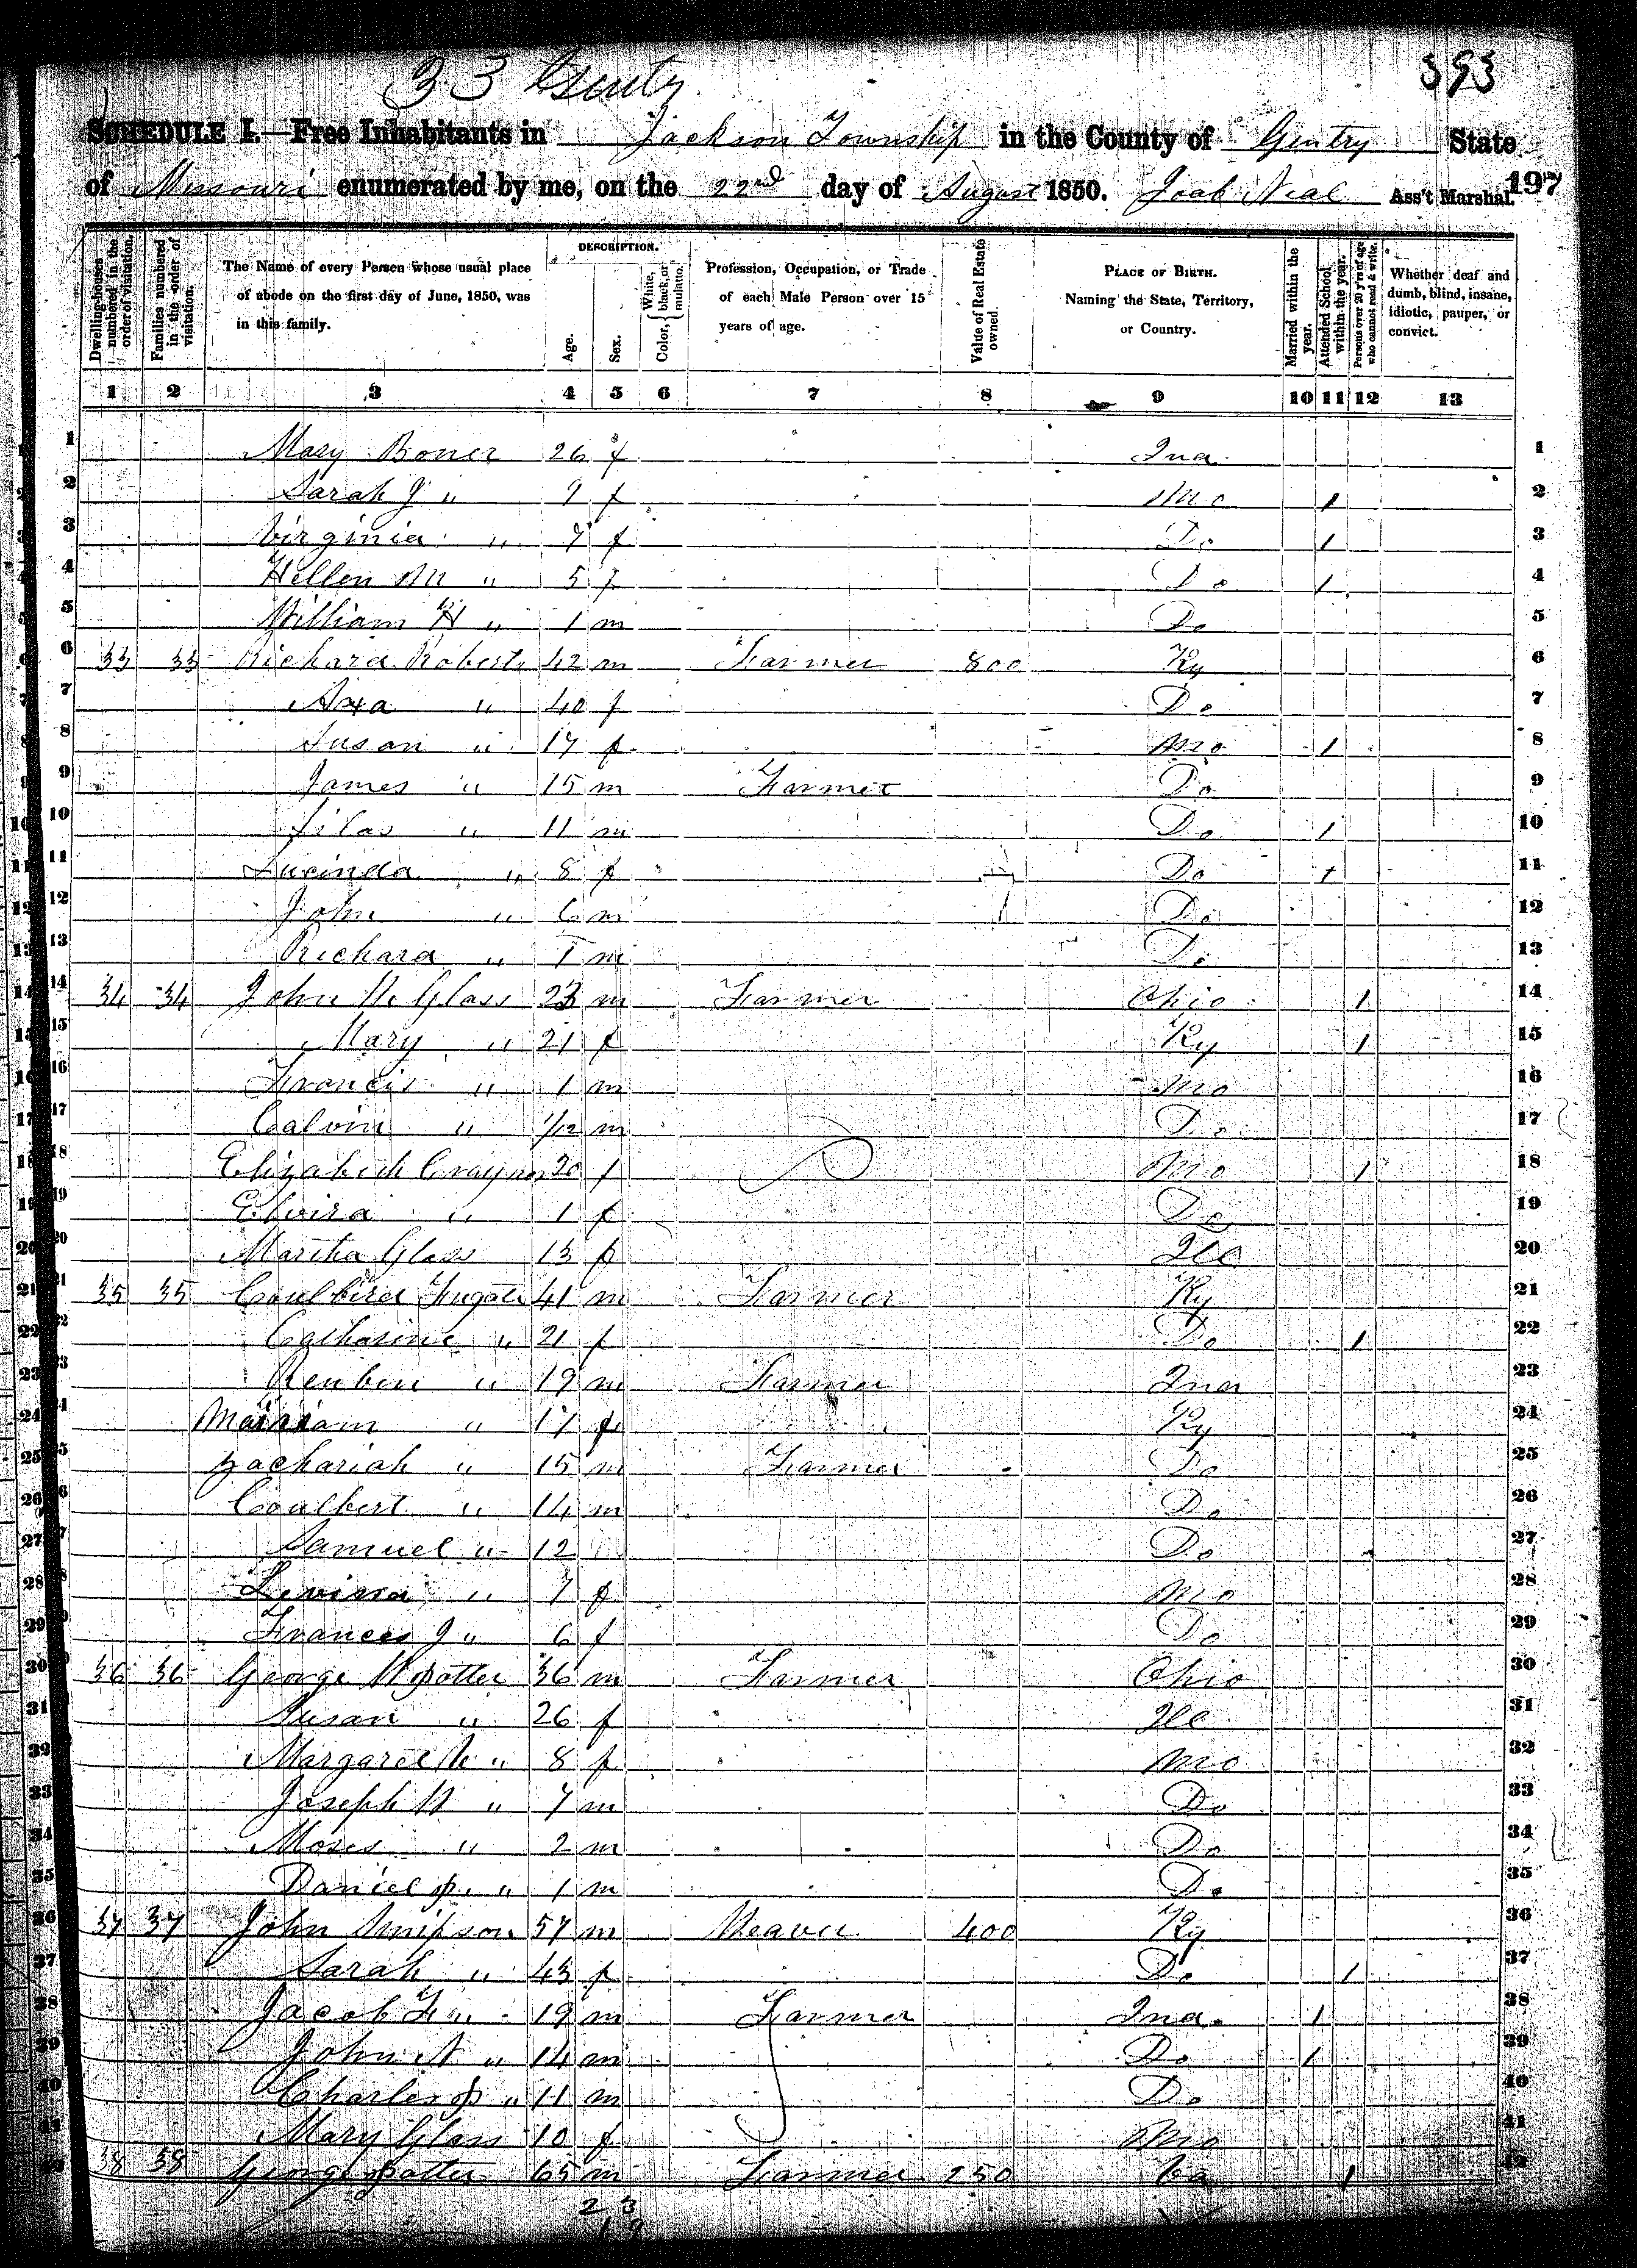 33 Gentry
393
SCHEDULE I.—Free Inhabitants in Jackson Township in the County of Gentry State
of Missouri enumerated by me, on the 22nd day of August 1850. Joab Neal Ass't Marshal. 197
Dwelling-houses numbered in the order of visitation.
Families numbered in the order of visitation.
The Name of every Person whose usual place of abode on the first day of June, 1850, was in this family.
DESCRIPTION.
Age.
Sex.
Color, { White, black, or mulatto.
Profession, Occupation, or Trade of each Male Person over 15 years of age.
Value of Real Estate owned.
PLACE OF BIRTH. Naming the State, Territory, or Country.
Married within the year.
Attended School within the year.
Persons over 20 y'rs of age who cannot read & write.
Whether deaf and dumb, blind, insane, idiotic, pauper, or convict.
1 2 3 4 5 6 7 8 9 10 11 12 13
1 Mary Boner 26 f Ind 1
2 Sarah J " 9 f Mo 1 2
3 Virginia " 7 f Do 1 3
4 Hellen M " 5 f Do 1 4
5 William H " 1 m Do 5
6 33 33 Richard Roberts 42 m Farmer 800 Ky 6
7 Axa " 40 f Do 7
8 Susan " 17 f Mo 1 8
9 James " 15 m Farmer Do 9
10 Silas " 11 m Do 1 10
11 Lucinda " 8 f Do 1 11
12 John " 6 m Do 12
13 Richard " 1 m Do 13
14 34 34 John Glass 23 m Farmer Ohio 1 14
15 Mary " 21 f Ky 1 15
16 Francis " 1 m Mo 16
17 Calvin " 1/12 m Do 17
18 Elizabeth 20 f Mo 1 18
19 Elvira " 1 f Do 19
20 Martha Glass 13 f Ill 20
21 35 35 Fugate 41 m Farmer Ky 21
22 Catharine " 21 f Do 1 22
23 Reuben " 19 m Farmer Ind 23
24 " 17 f Ky 24
25 Zachariah " 15 m Farmer Do 25
26 Coulbert " 14 m Do 26
27 Samuel " 12 Do 27
28 " 7 f Mo 28
29 Frances J " 6 f Do 29
30 36 36 George W Potter 36 m Farmer Ohio 30
31 Susan " 26 f Ill 31
32 Margaret " 8 f Mo 32
33 Joseph " 7 m Do 33
34 Moses " 2 m Do 34
35 Daniel P. " 1 m Do 35
36 37 37 John Simpson 57 m Weaver 400 Ky 36
37 Sarah " 43 f Do 1 37
38 Jacob F " 19 m Farmer Ind. 1 38
39 John " 14 m Do 1 39
40 Charles P " 11 m Do 40
41 Mary Glass 10 f Mo 41
42 38 38 George Potter 65 m Farmer 250 1 42
23
19